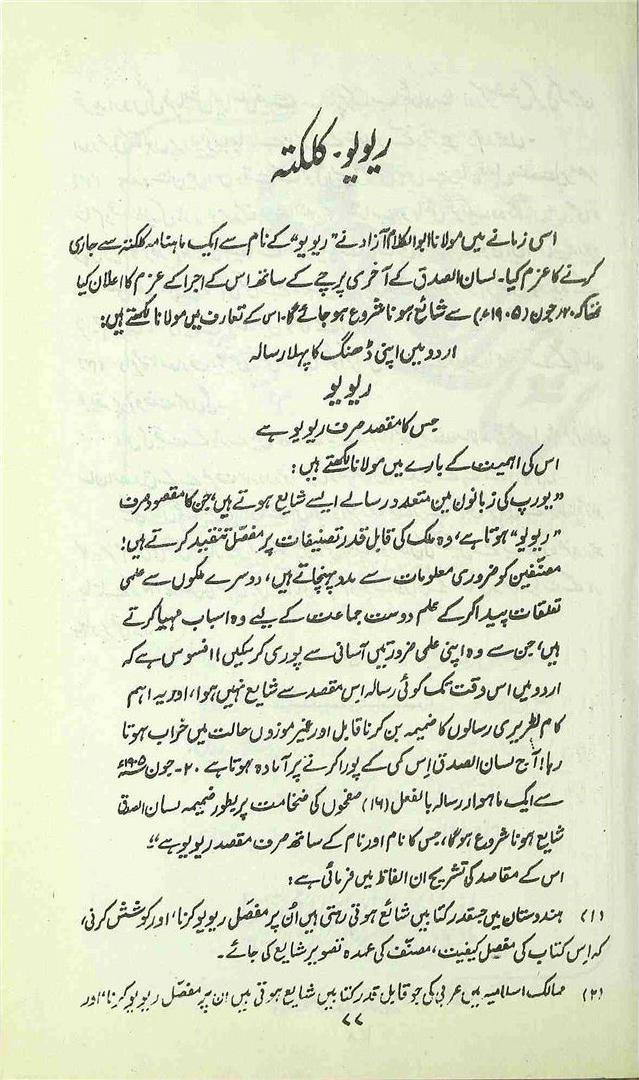 ریویو۔ کلکتہ
اسی زمانے میں مولانا ابوالکلام آزاد نے ”ریویو“ کے نام سے ایک ماہنامہ کلکتہ سے جاری
کرنے کا عزم کیا۔ لسان الصدق کے آخری پرچے کے ساتھ اس کے اجرا کے عزم کا اعلان کیا
تھا کہ ۲۰؍ جون (۱۹۰۵ء) سے شائع ہونا شروع ہو جائے گا۔ اس کے تعارف میں مولانا لکھتے ہیں:
اردو مین اپنی ڈھنگ کا پہلا رسالہ
ریویو
جس کا مقصد صرف ریویو ہے
اس کی اہمیت کے بارے میں مولانا لکھتے ہیں:
”یورپ کی زبانون مین متعدد رسالے ایسے شایع ہوتے ہیں، جن کا مقصود صرف
”ریویو“ ہوتا ہے، وہ ملک کی قابل قدر تصنیفات پر مفصّل تنقید کرتے ہیں؛
مصنّفین کو ضروری معلومات سے مدد پہنچاتے ہیں، دوسرے ملکوں سے علمی
تعلقات پیدا کر کے علم دوست جماعت کے لیے وہ اسباب مہیا کرتے
ہیں، جن سے وہ اپنی علمی ضرورتیں آسانی سے پوری کر سکیں! افسوس ہے کہ
اردو میں اس وقت تک کوئی رسالہ اس مقصد سے شایع نہیں ہوا، اور یہ اہم
کام لٹریری رسالوں کا ضمیمہ بن کر ناقابل اور غیر موزوں حالت میں خراب ہوتا
رہا! آج لسان الصدق اِس کمی کے پورا کرنے پر آمادہ ہوتا ہے ۲۰۔ جون ۱۹۰۵ء
سے ایک ماہوار رسالہ بالفعل (۱۶) صفحوں کی ضخامت پر بطور ضمیمہ لسان الصدق
شایع ہونا شروع ہوگا، جس کا نام اور نام کے ساتھ صرف مقصد ریویو ہے“!
اس کے مقاصد کی تشریح ان الفاظ میں فرمائی ہے:
(۱) ہندوستان میں جسقدر کتابیں شائع ہوتی رہتی ہیں اُن پر مفصّل ریویو کرنا، اور کوشش کرنی،
کہ اِس کتاب کی مفصل کیفیت، مصنّف کی عمدہ تصویر شایع کی جائے۔
(۲) ممالک اسلامیہ میں عربی کی جو قابل قدر کتابیں شایع ہوتی ہیں اِن پر مفصّل ریویو کرنا، اور
۷۷